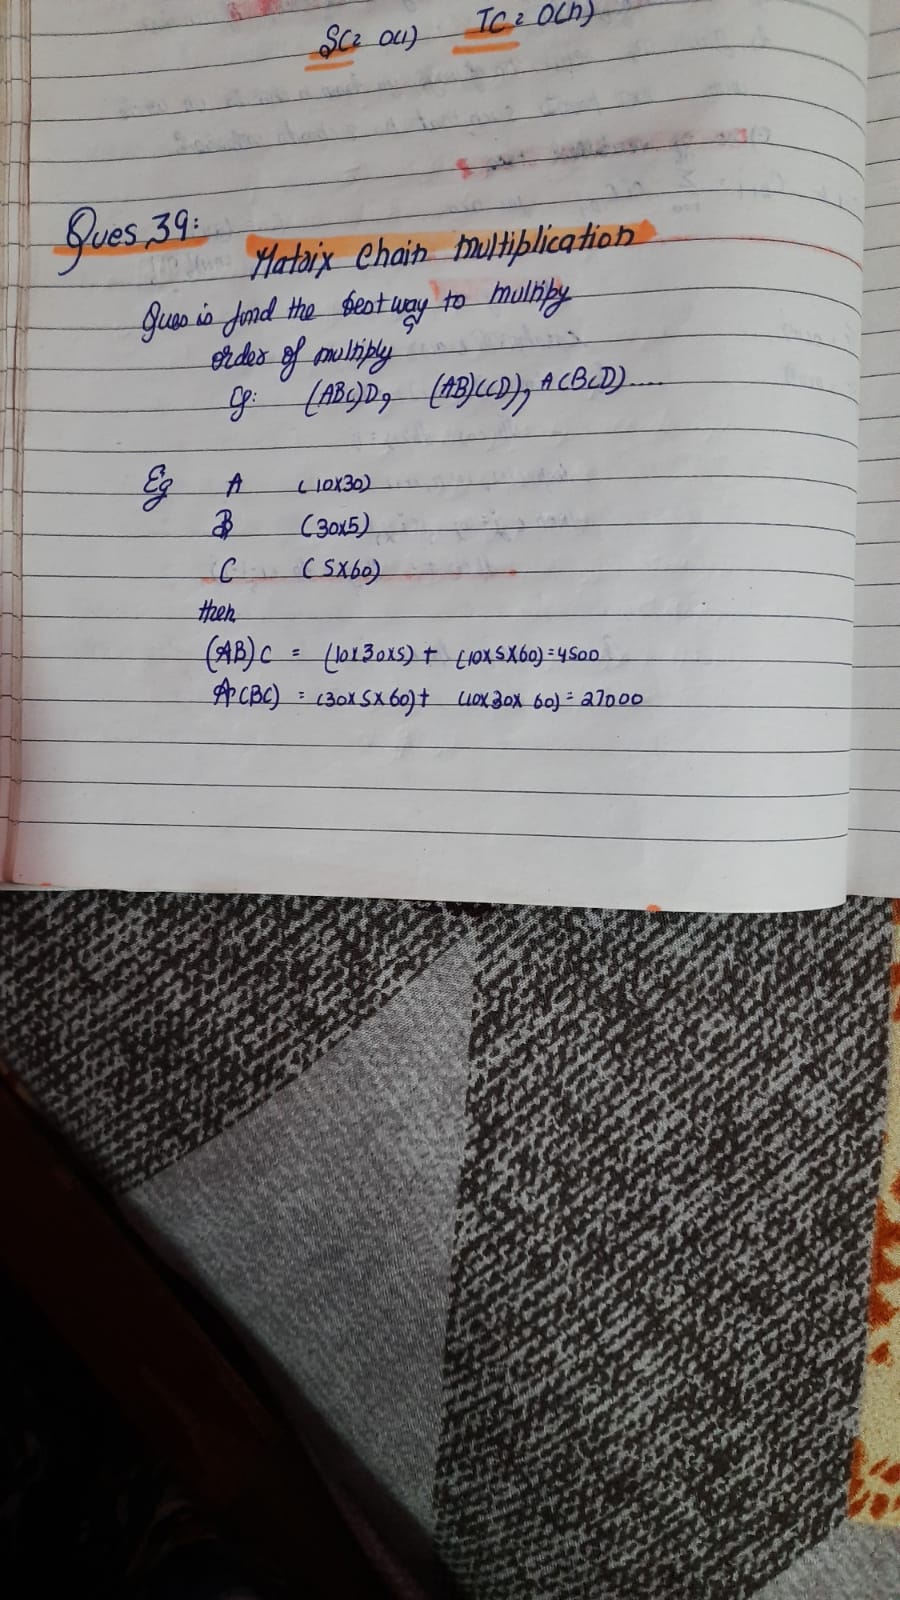 SC = O(1) TC = O(n)
Ques 39:
Matrix Chain multiplication
Ques is find the best way to multipy
order of multiply
Eg: (ABC)D, (AB)(CD), A(BCD)....
Eg A (10x30)
B (30x5)
C (5x60)
then
(AB)C = (10x30x5) + (10x5x60) = 4500
A(BC) = (30x5x60) + (10x30x 60) = 27000